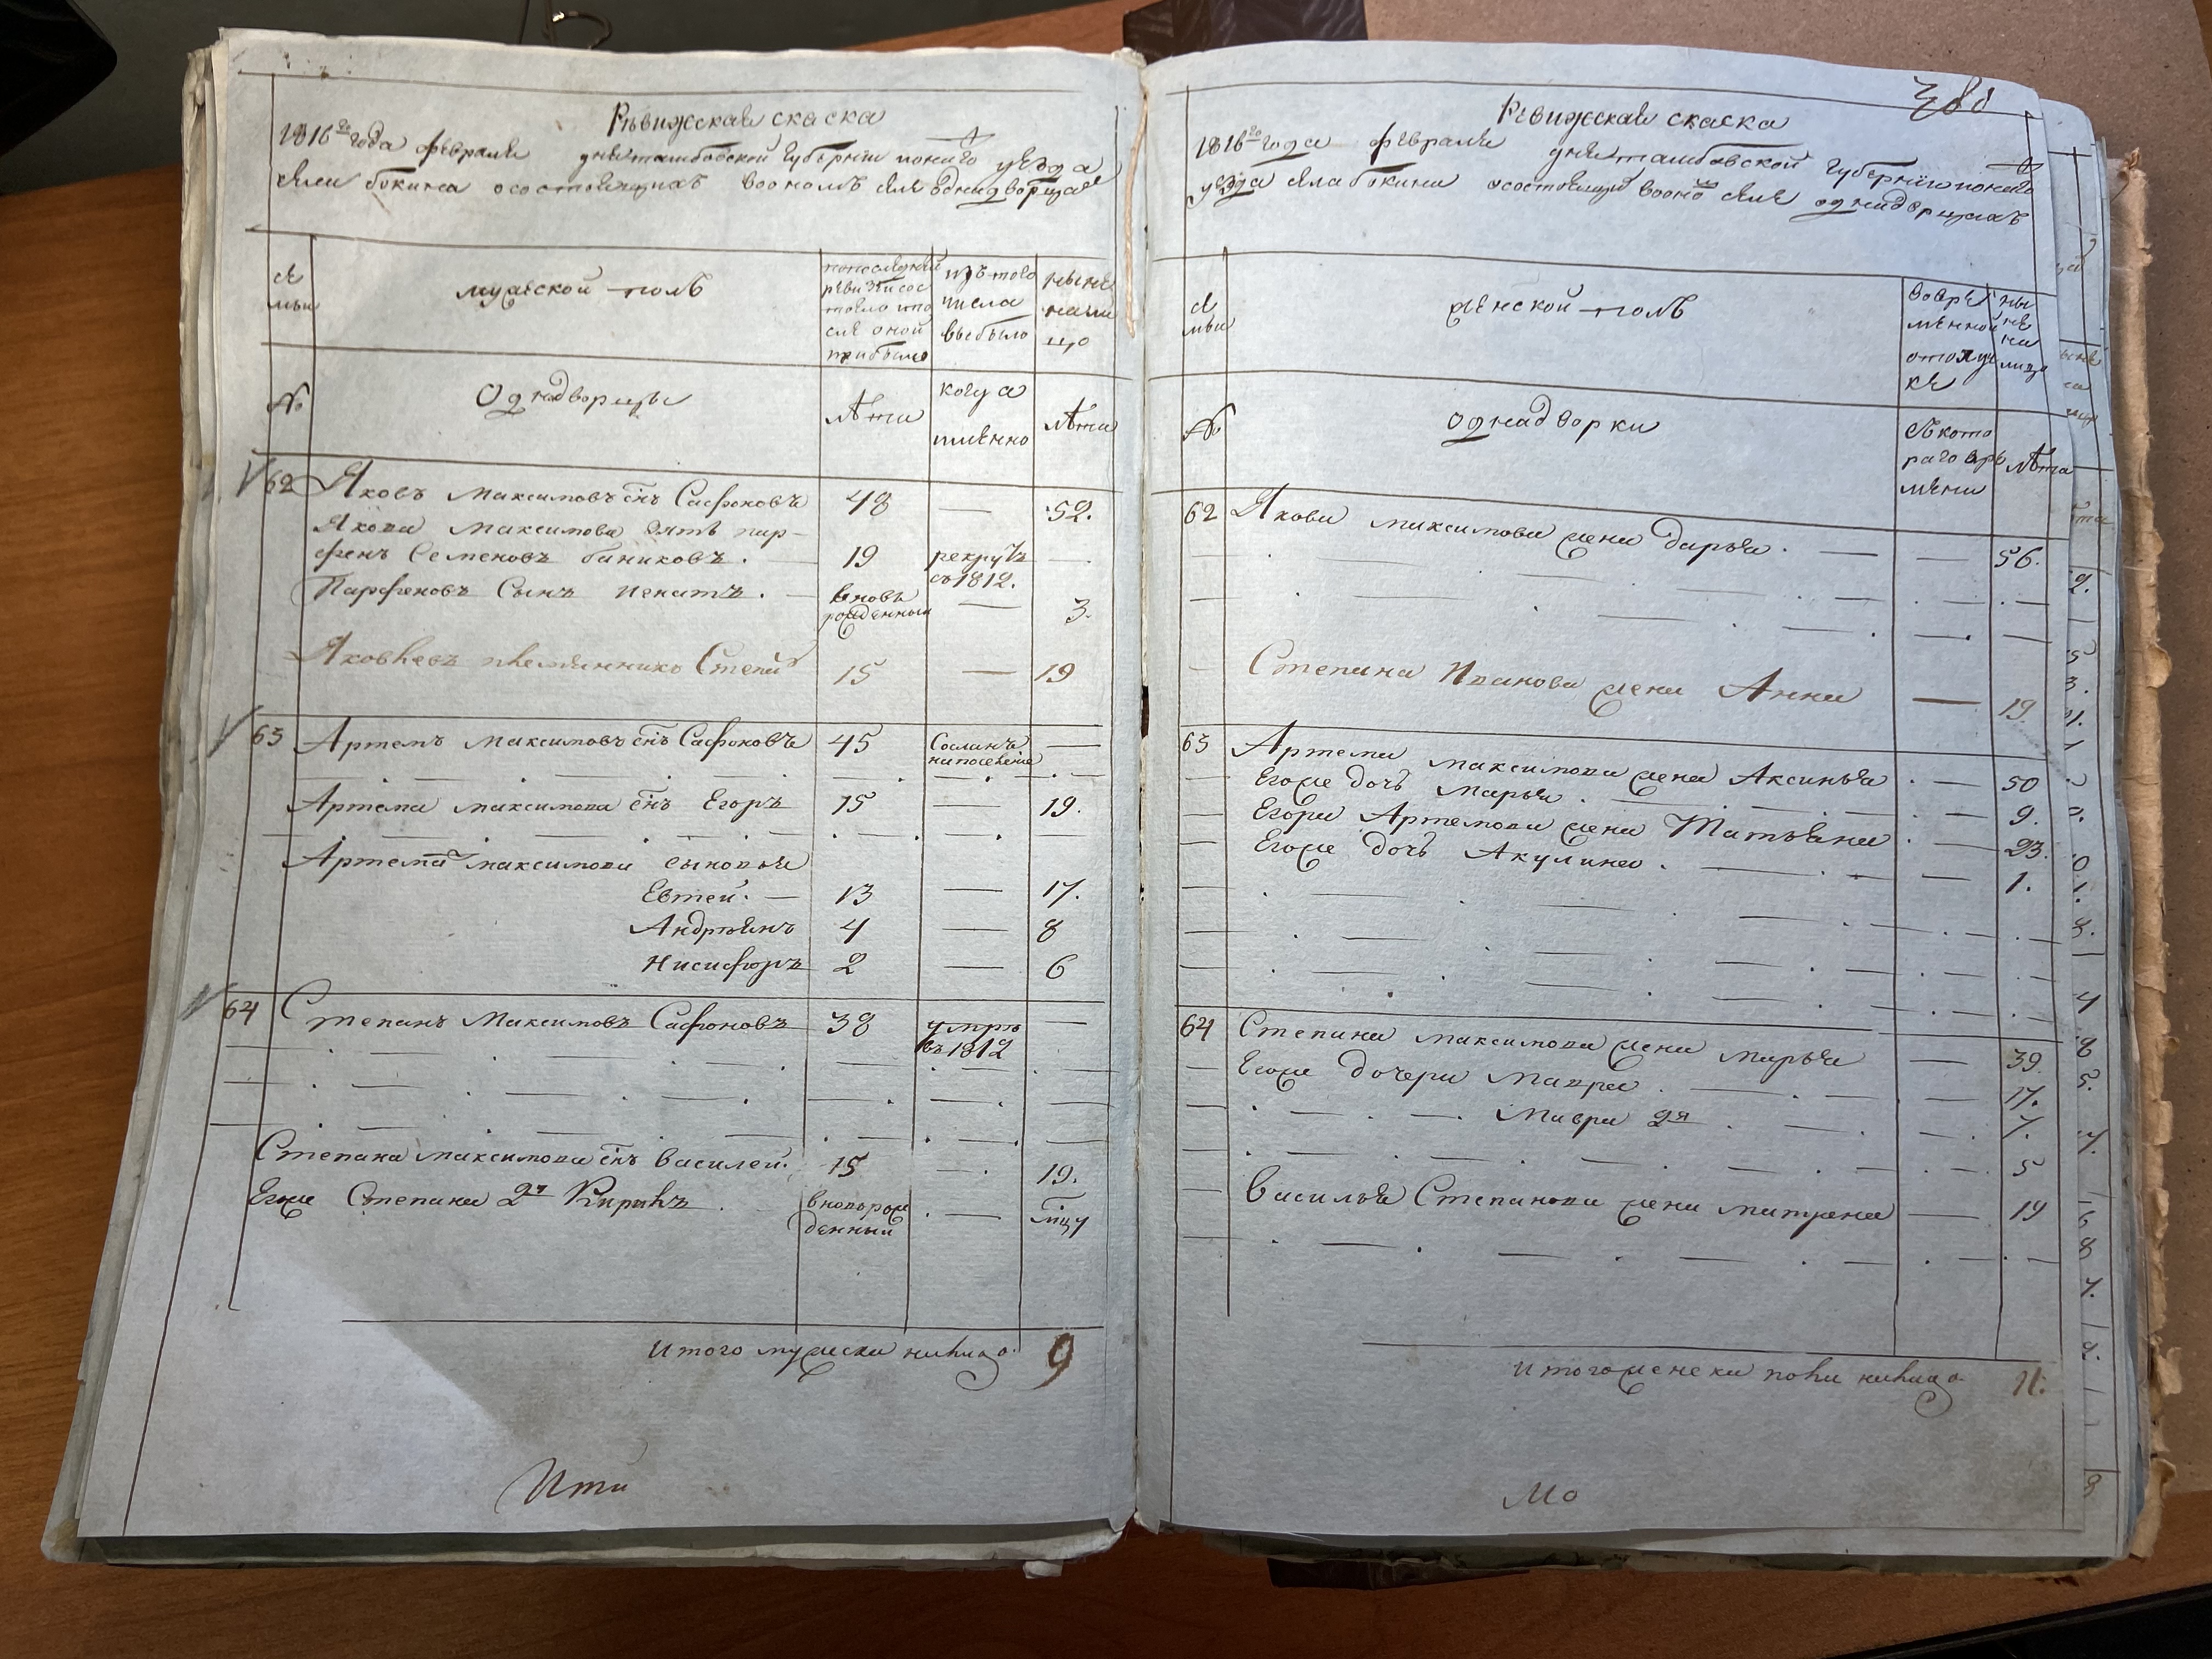 Ревижская скаска
1816го года февраля дня тамбовской губернии конаго уезда
села бокина осостоящихъ воономъ селе однадворцахъ
се мьи
мужской полъ
попоследней ревизіи сос тояло ипо сле оной прибыло
изътого числа выбыло
ныне нали цо
№
Однадворцы
лѣта
когда имѣнно
лѣта
62 Яковъ Максимовъ сн҃ъ Сафоновъ 48 — 52.
Якова Максимова зять пар-
фенъ Семеновъ баниковъ. 19 рекрутъ съ1812. —
Парфеновъ Сынъ Игнатъ. вновь рожденный — 3.
Яковлевъ племянникъ Степан 15 — 19
63 Артемъ Максимовъ сн҃ъ Сафоновъ 45 Сосланъ напоселеніе —
Артема Максимова сн҃ъ Егоръ 15 — 19.
Артема Максимова сыновья
Евтей. — 13 — 17.
Андреянъ 4 — 8
Нисифоръ 2 — 6
64 Степанъ Максимовъ Сафоновъ 38 умре въ1812 —
Степана Максимова сн҃ъ Василей. 15 — 19.
Егоже Степана 2й Кирилъ вноворож денный — мцу
Итого мужска налицо. 9
388
Ревижская скаска
1816го года февраля дня тамбовской губернии конаго
уезда села бокина осостоящих вооном селе однадворцахъ
се мьи
женской полъ
вовре мѣнной отлуч ке
ны не на лицо
№
однадворки
съкото раго вре мѣни
лѣта
62 Якова максимова жена дарья. — — 56.
Степана Иванова жена Анна — 19.
63 Артема максимова жена Аксинья — 50
Егоже дочь марья. — 9.
Егора Артемова жена Татьяна — 23.
Егоже дочь Акулина. — 1.
64 Степана максимова жена марья — 39.
Егоже дочери мавра. — 17.
Мавра 2я 7.
5
Василья Степанова жена матрена — 19
Итогоженска пола налицо 11.
Мо